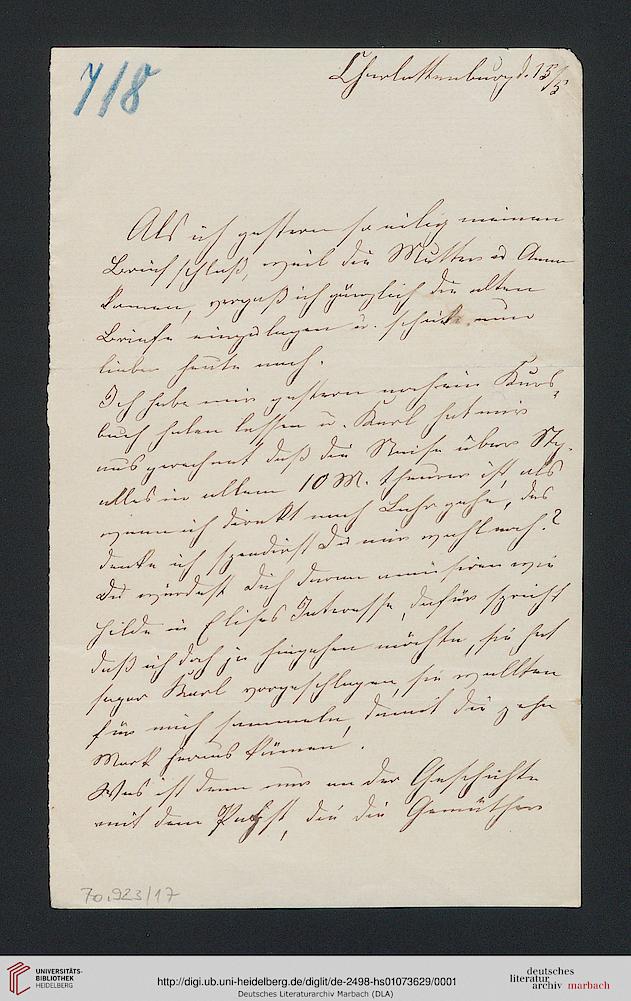 718
Charlottenburg d. 15/5
Als ich gestern so eilig meinen
Brief schloß, weil die Mutter u Anna
kamen, vergaß ich gänzlich die alten
Briefe einzulegen u. schicke nun
lieber heute nach.
Ich habe mir gestern noch ein Kurs-
buch holen lassen u. Karl hat mir
ausgerechnet, daß die Reise über
alles in allem 10 M. theurer ist, als
wenn ich direkt nach Lahr gehe, das
denke ich spendirst Du mir wohl noch?
Du würdest Dich daran amüsiren wie
Hilde u Elises Interesse, dafür spricht
daß ich doch ja hingehen möchte, sie hat
sogar Karl vorgeschlagen, sie wollten
für mich sammeln, damit die zehn
Mark heraus kämen.
Was ist denn nur an der Geschichte
mit dem, die die Gemüther
70.923/17
UNIVERSITÄTS-
BIBLIOTHEK
HEIDELBERG
http://digi.ub.uni-heidelberg.de/diglit/de-2498-hs01073629/0001
Deutsches Literaturarchiv Marbach (DLA)
deutsches
literatur
archiv marbach